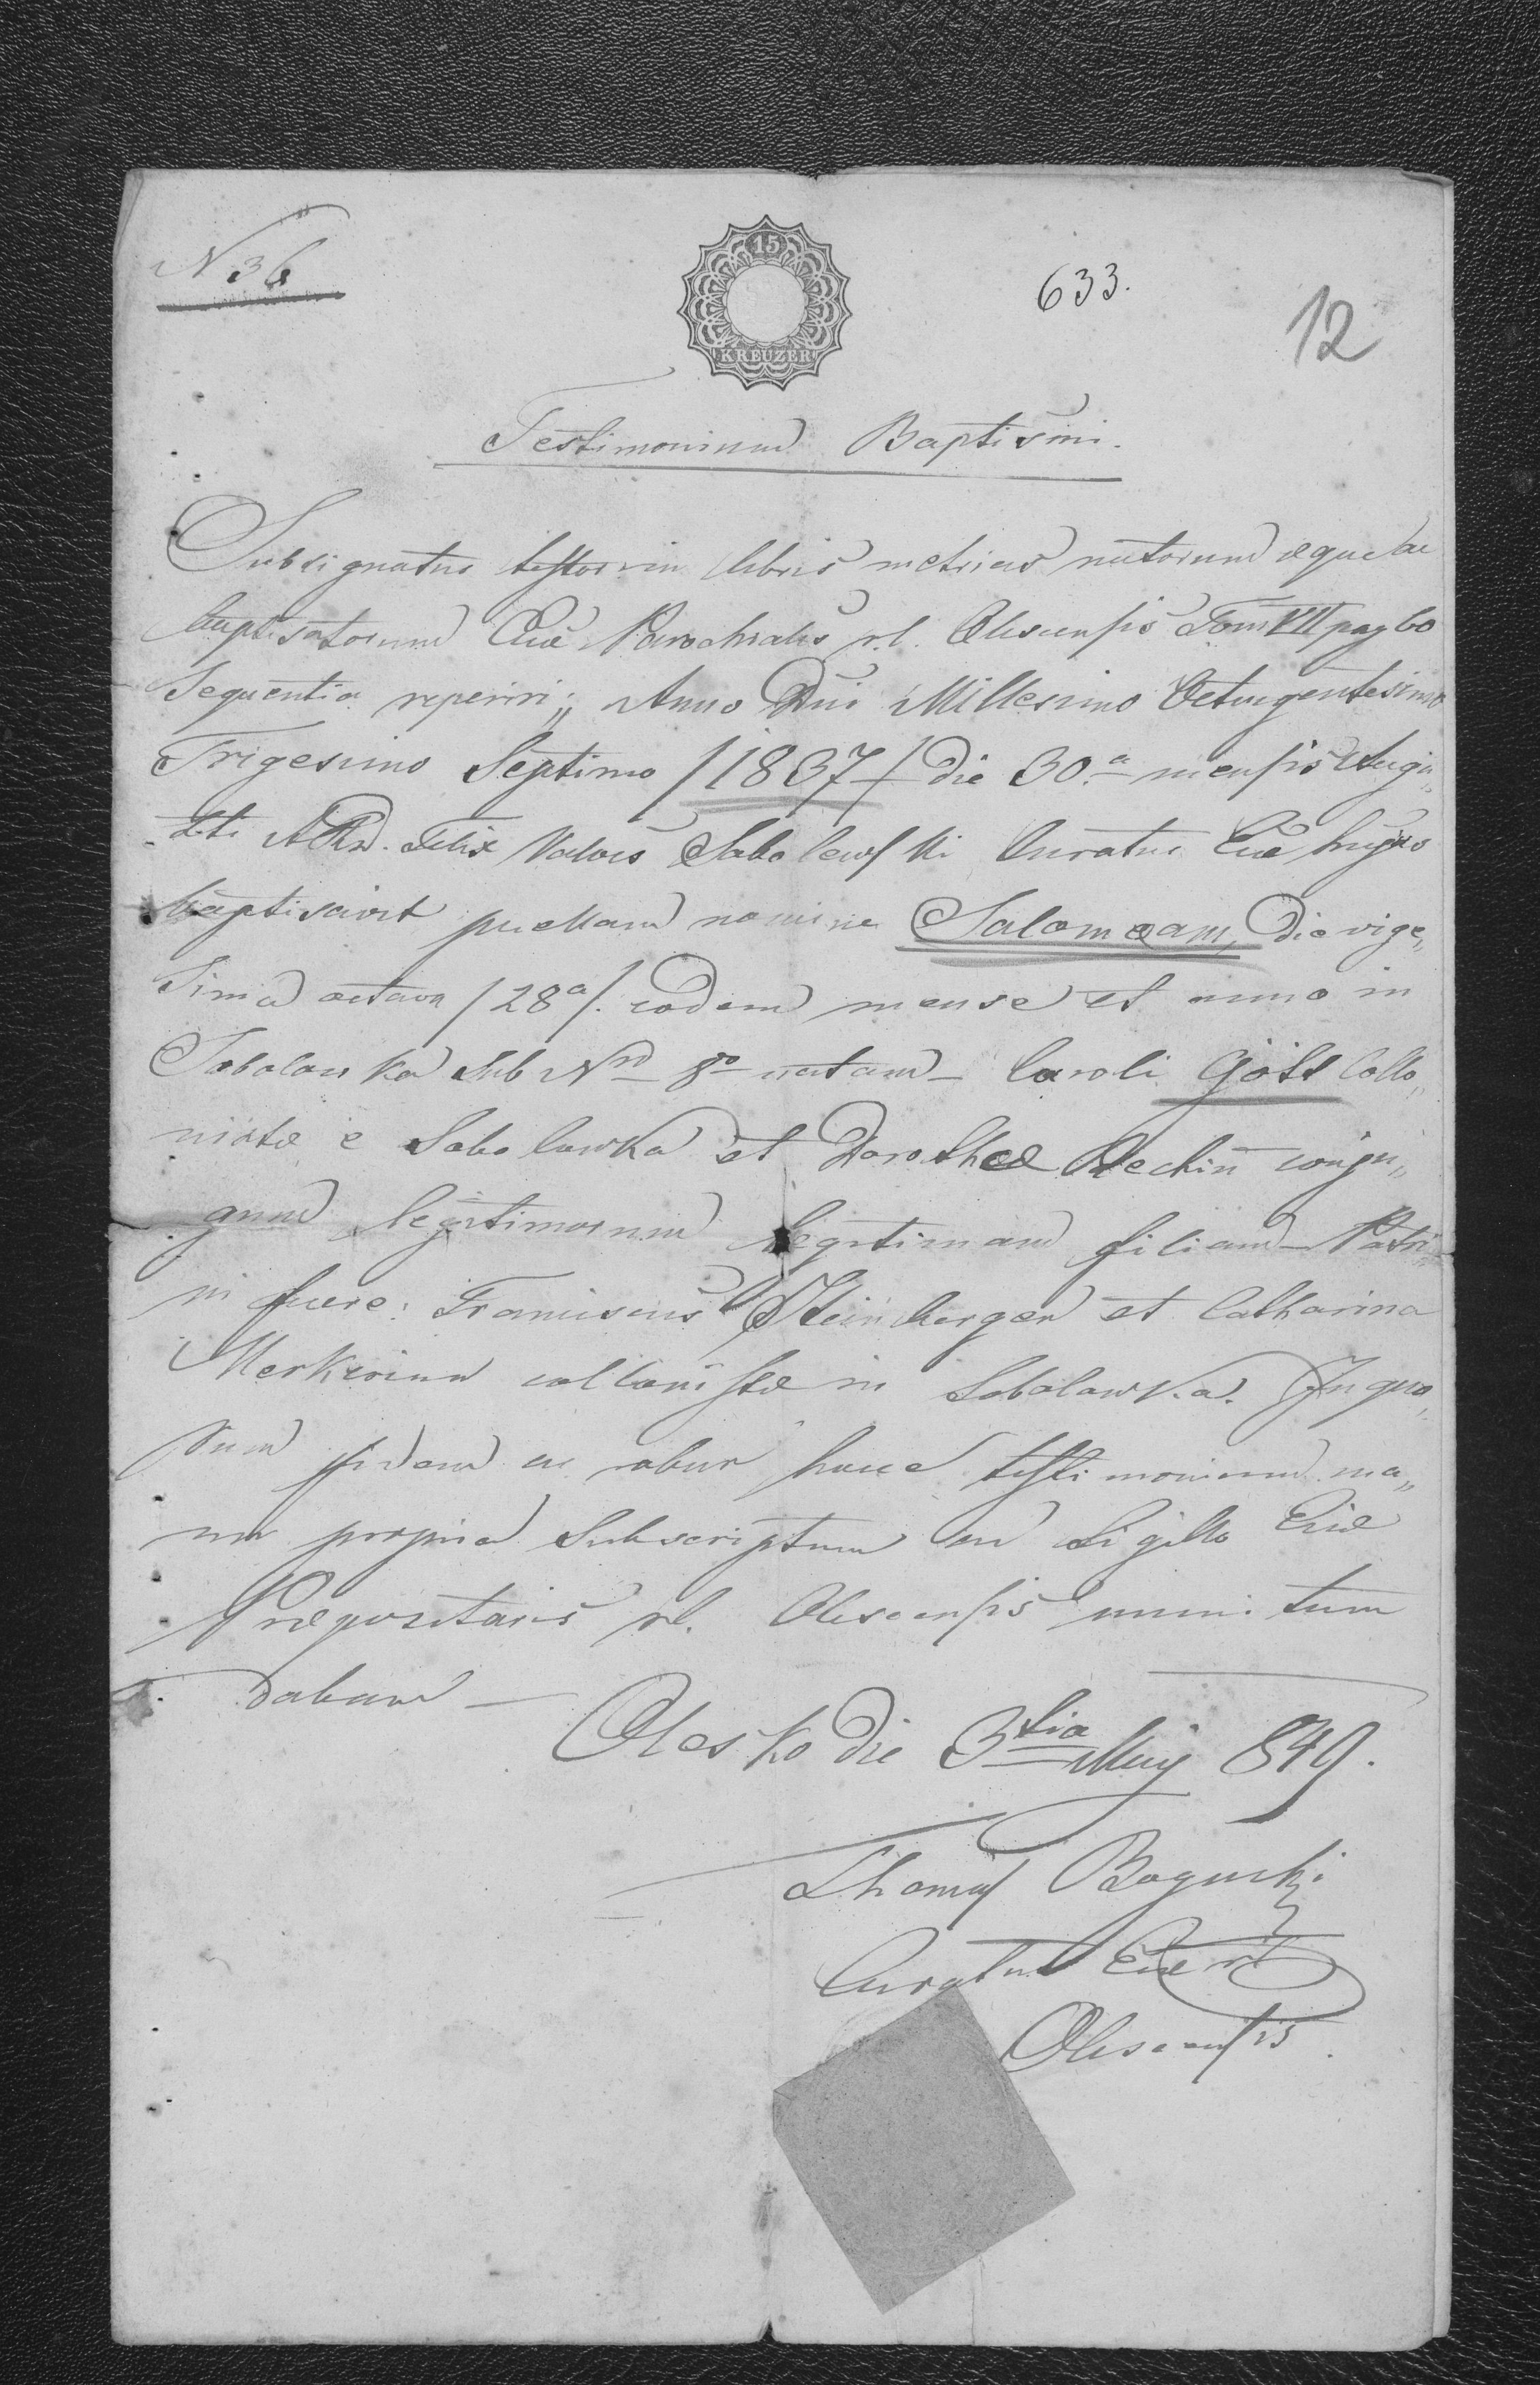 N 36
15
KREUZER
633.
12
Testimonium Baptismi.
Subsignatus testor in libris metrices natorum æque ac
baptisatorum Eccæ Parochialis r.l. Olescensis Tom VII pag 60
Sequentia reperiri; Anno Dni Millesimo Octingentesimo
Trigesimo Septimo /1837/ die 30.a mensis Augu„
sti AR. Felix Sabolewski Curatus Eccæ hujus
baptisavit puellam nomine Salomeam, die vige„
sima octava /28a/. eodem mense et anno in
Sabolowka Sub Nro 8o natam - Caroli Gött Collo„
nistæ e Sabolowka et Dorotheæ conju„
gum legitimorum legitimam filiam - Patri„
ni fuere: Franciscus Steinberger et Catharina
Merkwinn collonistæ in Sabolowka. In quo„
rum fidem ac robur hocce testimonium ma„
nu propria Subscriptum ac Sigillo Eccæ
Præpositaris r.l. Olescensis munitum
dabam -
Olesko die 3tia Maij 849.
Thomas Bogucki
Curatus Eccæ rl
Olescensis